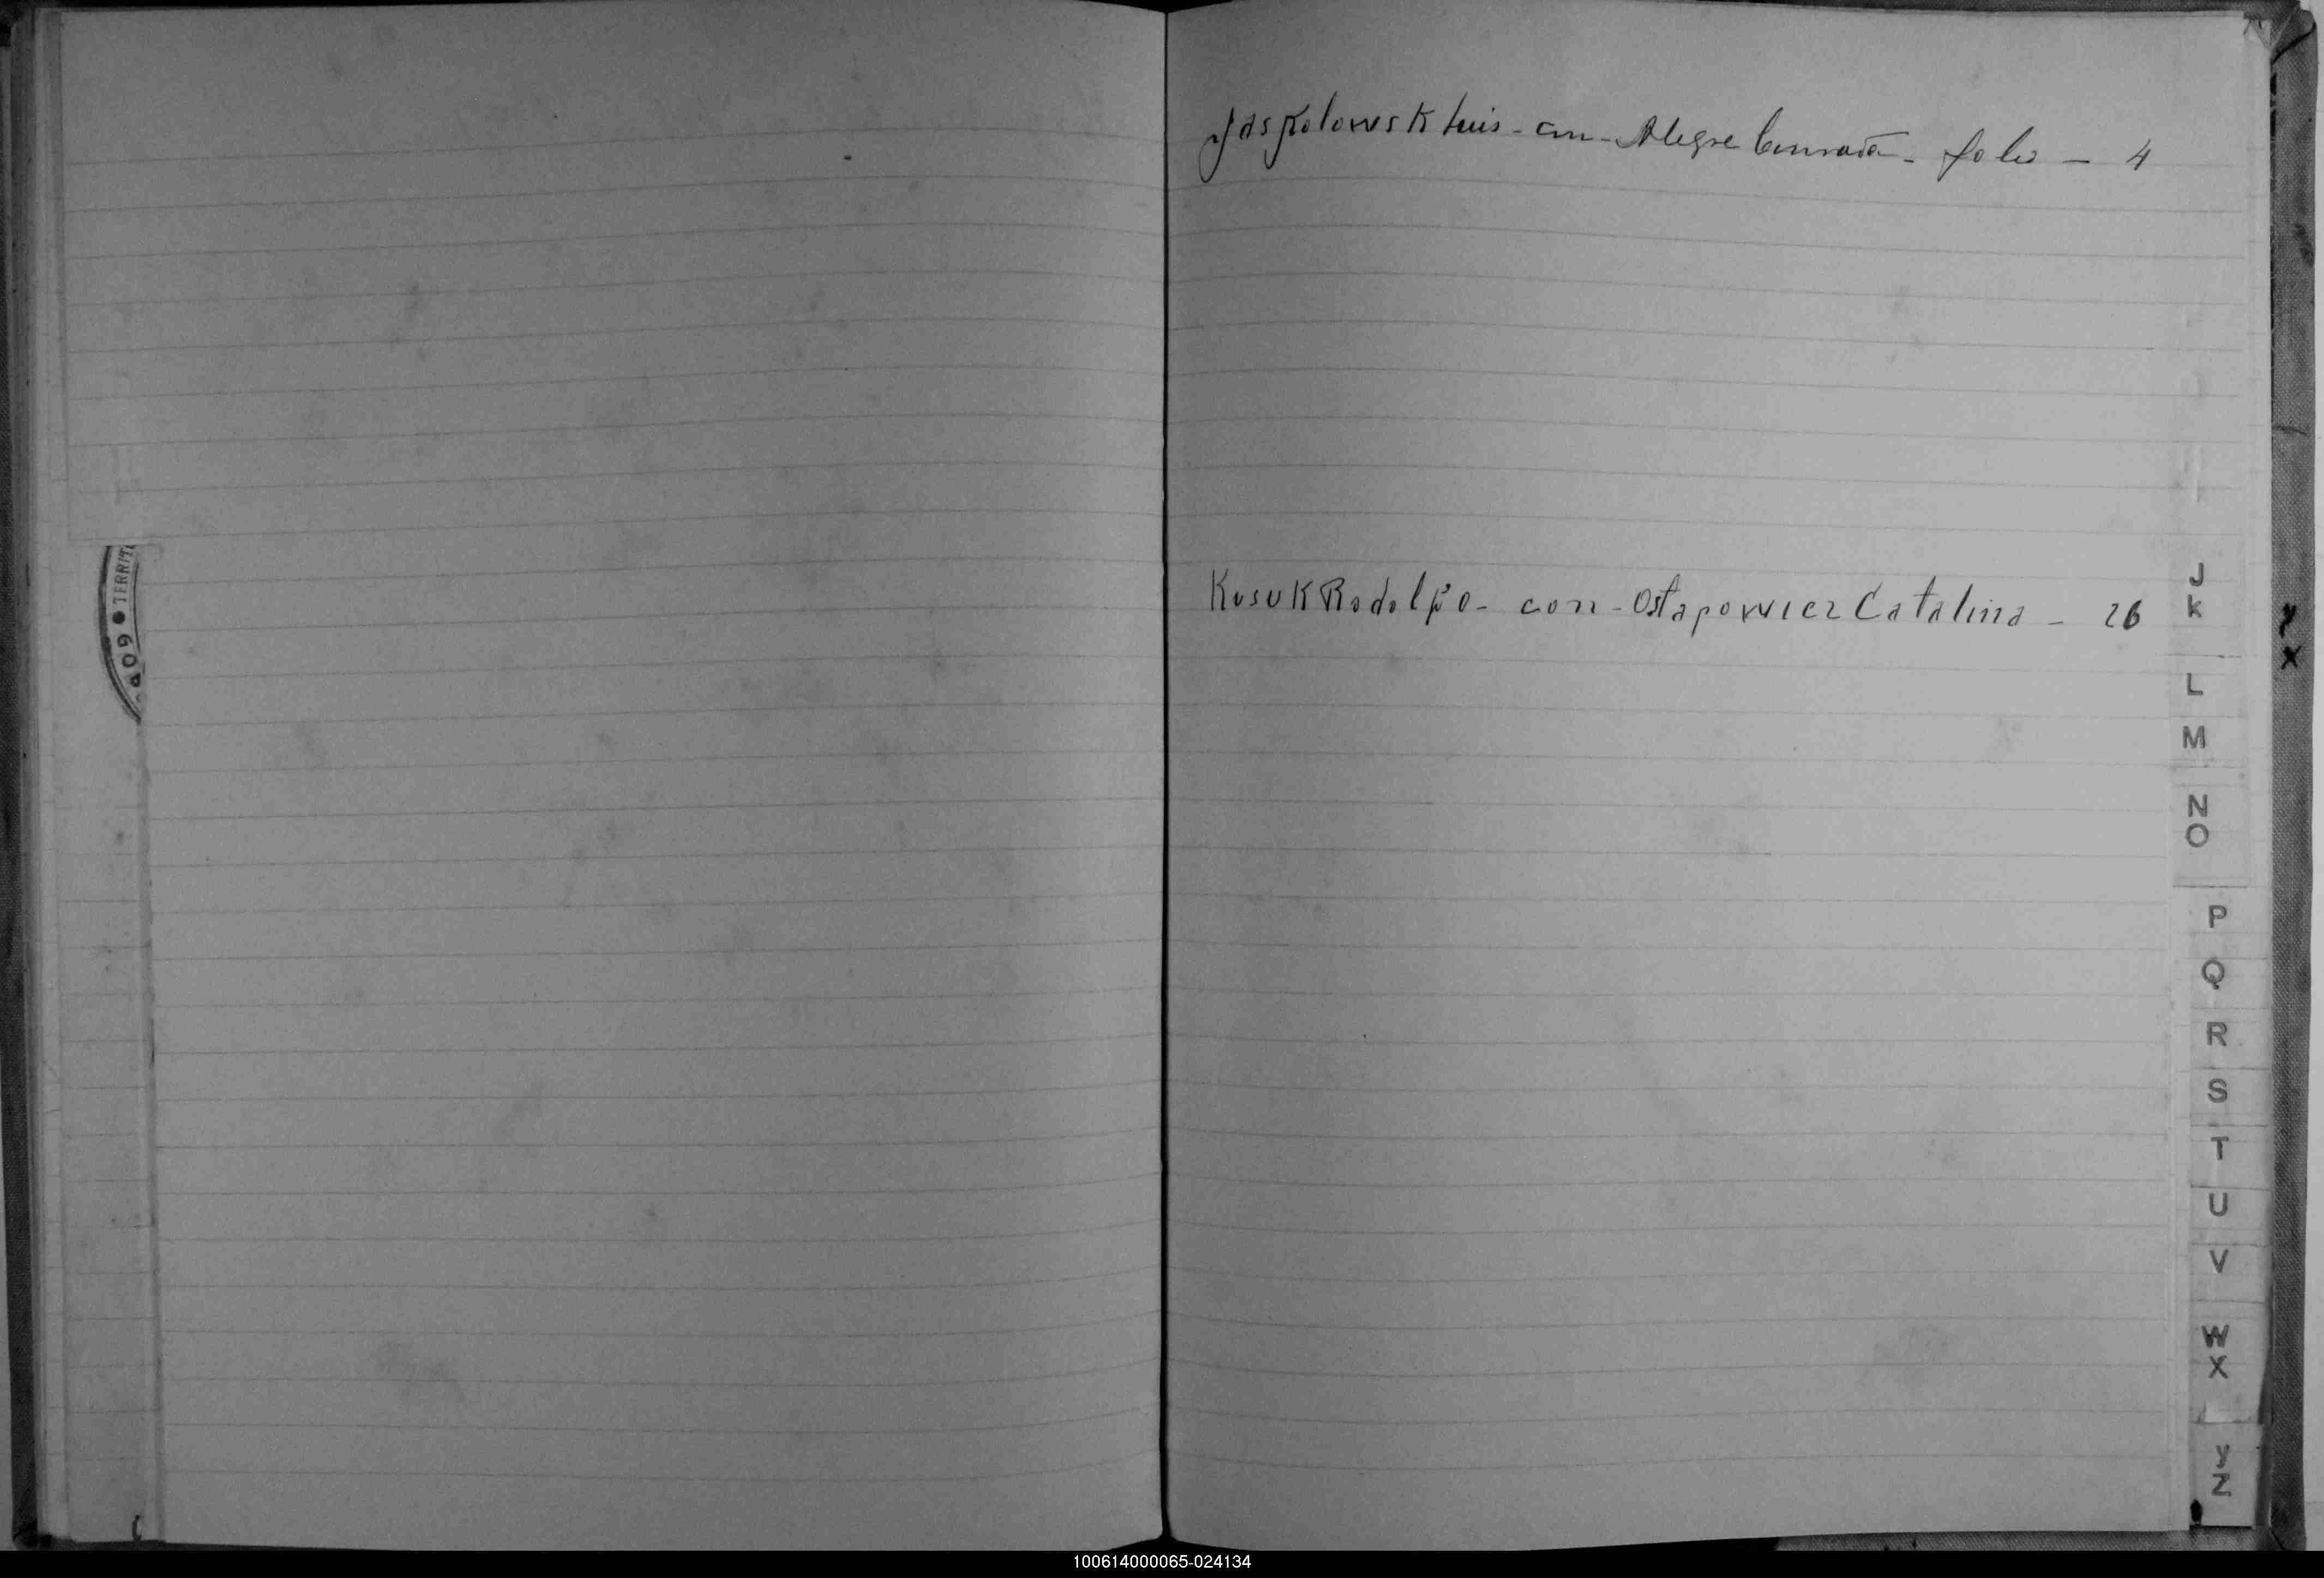 Jaskolowsk Luis - con - Alegre Conrada - folio - 4
Kusuk Rodolfo - con - Ostapowicz Catalina - 26
TERRIT
409
J
K
L
M
N
O
P
Q
R
S
T
U
V
W
X
y
Z
100614000065-024134